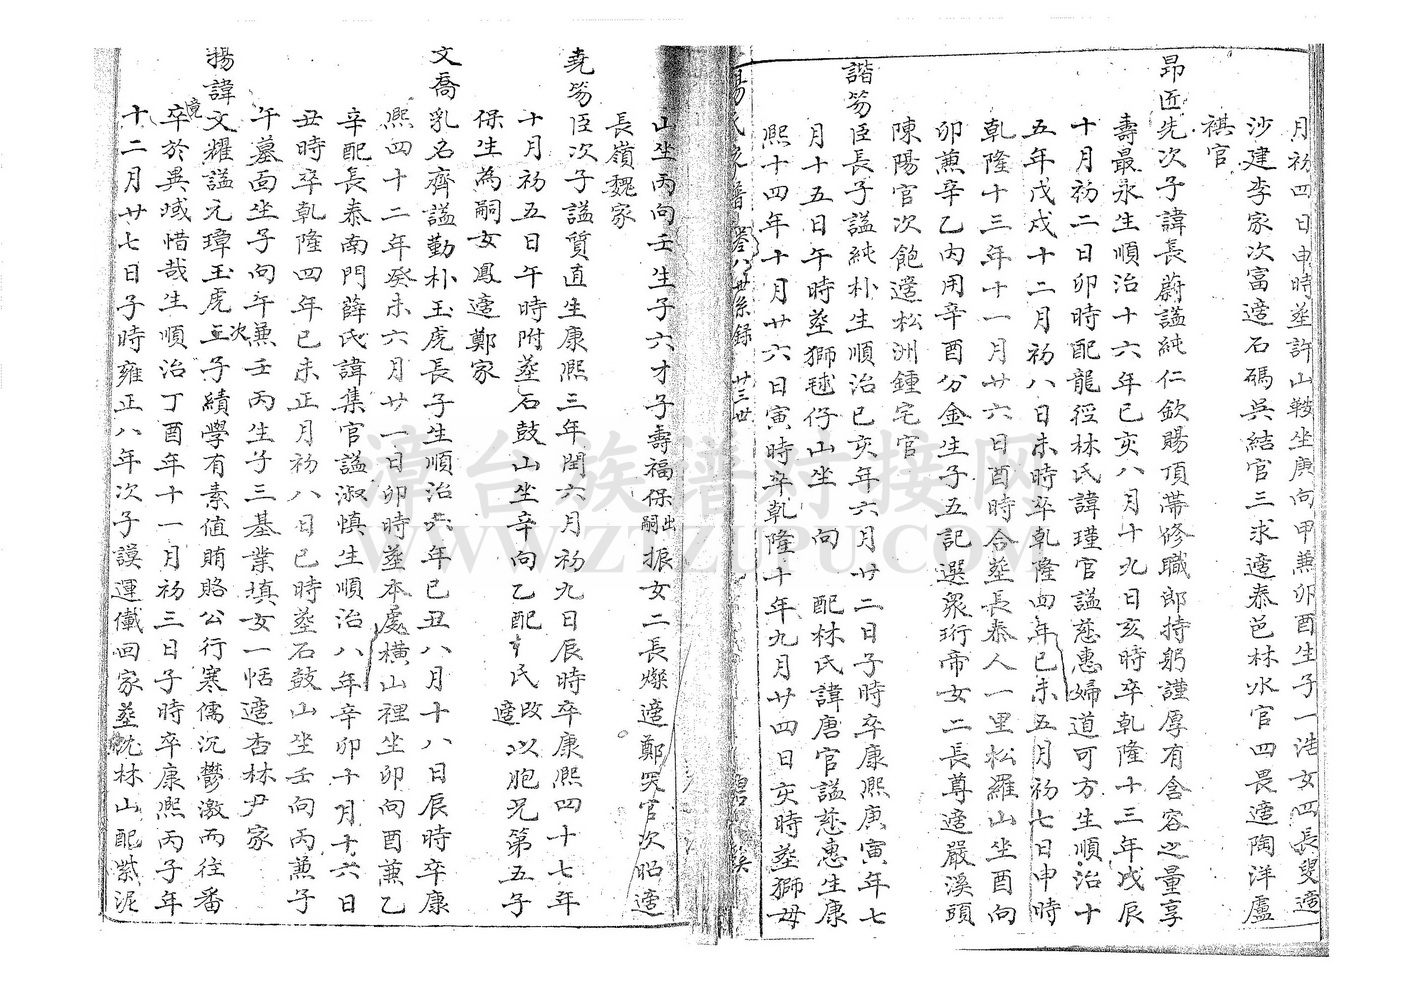 月初四日申時葬許山鞍坐庚向甲兼卯酉生子一浩女四長叟適
沙建李家次富適石碼吳結官三求適泰邑林水官四畏適陶洋盧
祺官
昂匠先次子諱長蔚謚純仁欽賜頂帶修職郎持躬謹厚有含容之量享
壽最永生順治十六年己亥八月十九日亥時卒乾隆十三年戊辰
十月初二日卯時配龍徑林氏諱瑾官謚慈惠婦道可方生順治十
五年戊戌十二月初八日未時卒乾隆四年己未五月初七日申時
乾隆十三年十一月廿六日酉時合葬長泰人一里松羅山坐酉向
卯兼辛乙內用辛酉分金生子五記選眾珩帝女二長尊適嚴溪頭
陳陽官次飽適松洲鍾宅官
諧笏臣長子謚純朴生順治己亥年六月廿二日子時卒康熙庚寅年七
月十五日午時葬獅毬仔山坐 向 配林氏諱唐官謚慈惠生康
熙十四年十月廿六日寅時卒乾隆十年九月廿四日亥時葬獅母
楊氏家譜 卷八世系錄 廿三世
碧溪
山坐丙向壬生子六才子壽福保出嗣振女二長燦適鄭哭官次昭適
長嶺魏家
堯笏臣次子謚質直生康熙三年閏六月初九日辰時卒康熙四十七年
十月初五日午時附葬石鼓山坐辛向乙配 氏改適以胞兄第五子
保生為嗣女鳳適鄭家
文喬乳名齊謚勤朴玉虎長子生順治六年己丑八月十八日辰時卒康
熙四十二年癸未六月廿一日卯時葬本處橫山裡坐卯向酉兼乙
辛配長泰南門薛氏諱集官謚淑慎生順治八年辛卯十月十六日
丑時卒乾隆四年己未正月初八日巳時葬石鼓山坐壬向丙兼子
午墓面坐子向午兼壬丙生子三基業填女一恬適杏林尹家
揚諱文耀謚元璋玉虎次子績學有素值賄賂公行寒儒沉鬱激而往番
境卒於異域惜哉生順治丁酉年十一月初三日子時卒康熙丙子年
十二月廿七日子時雍正八年次子謨運儎回家葬沈林山配紫泥
漳台族谱对接网
WWW.ZTZUPU.COM